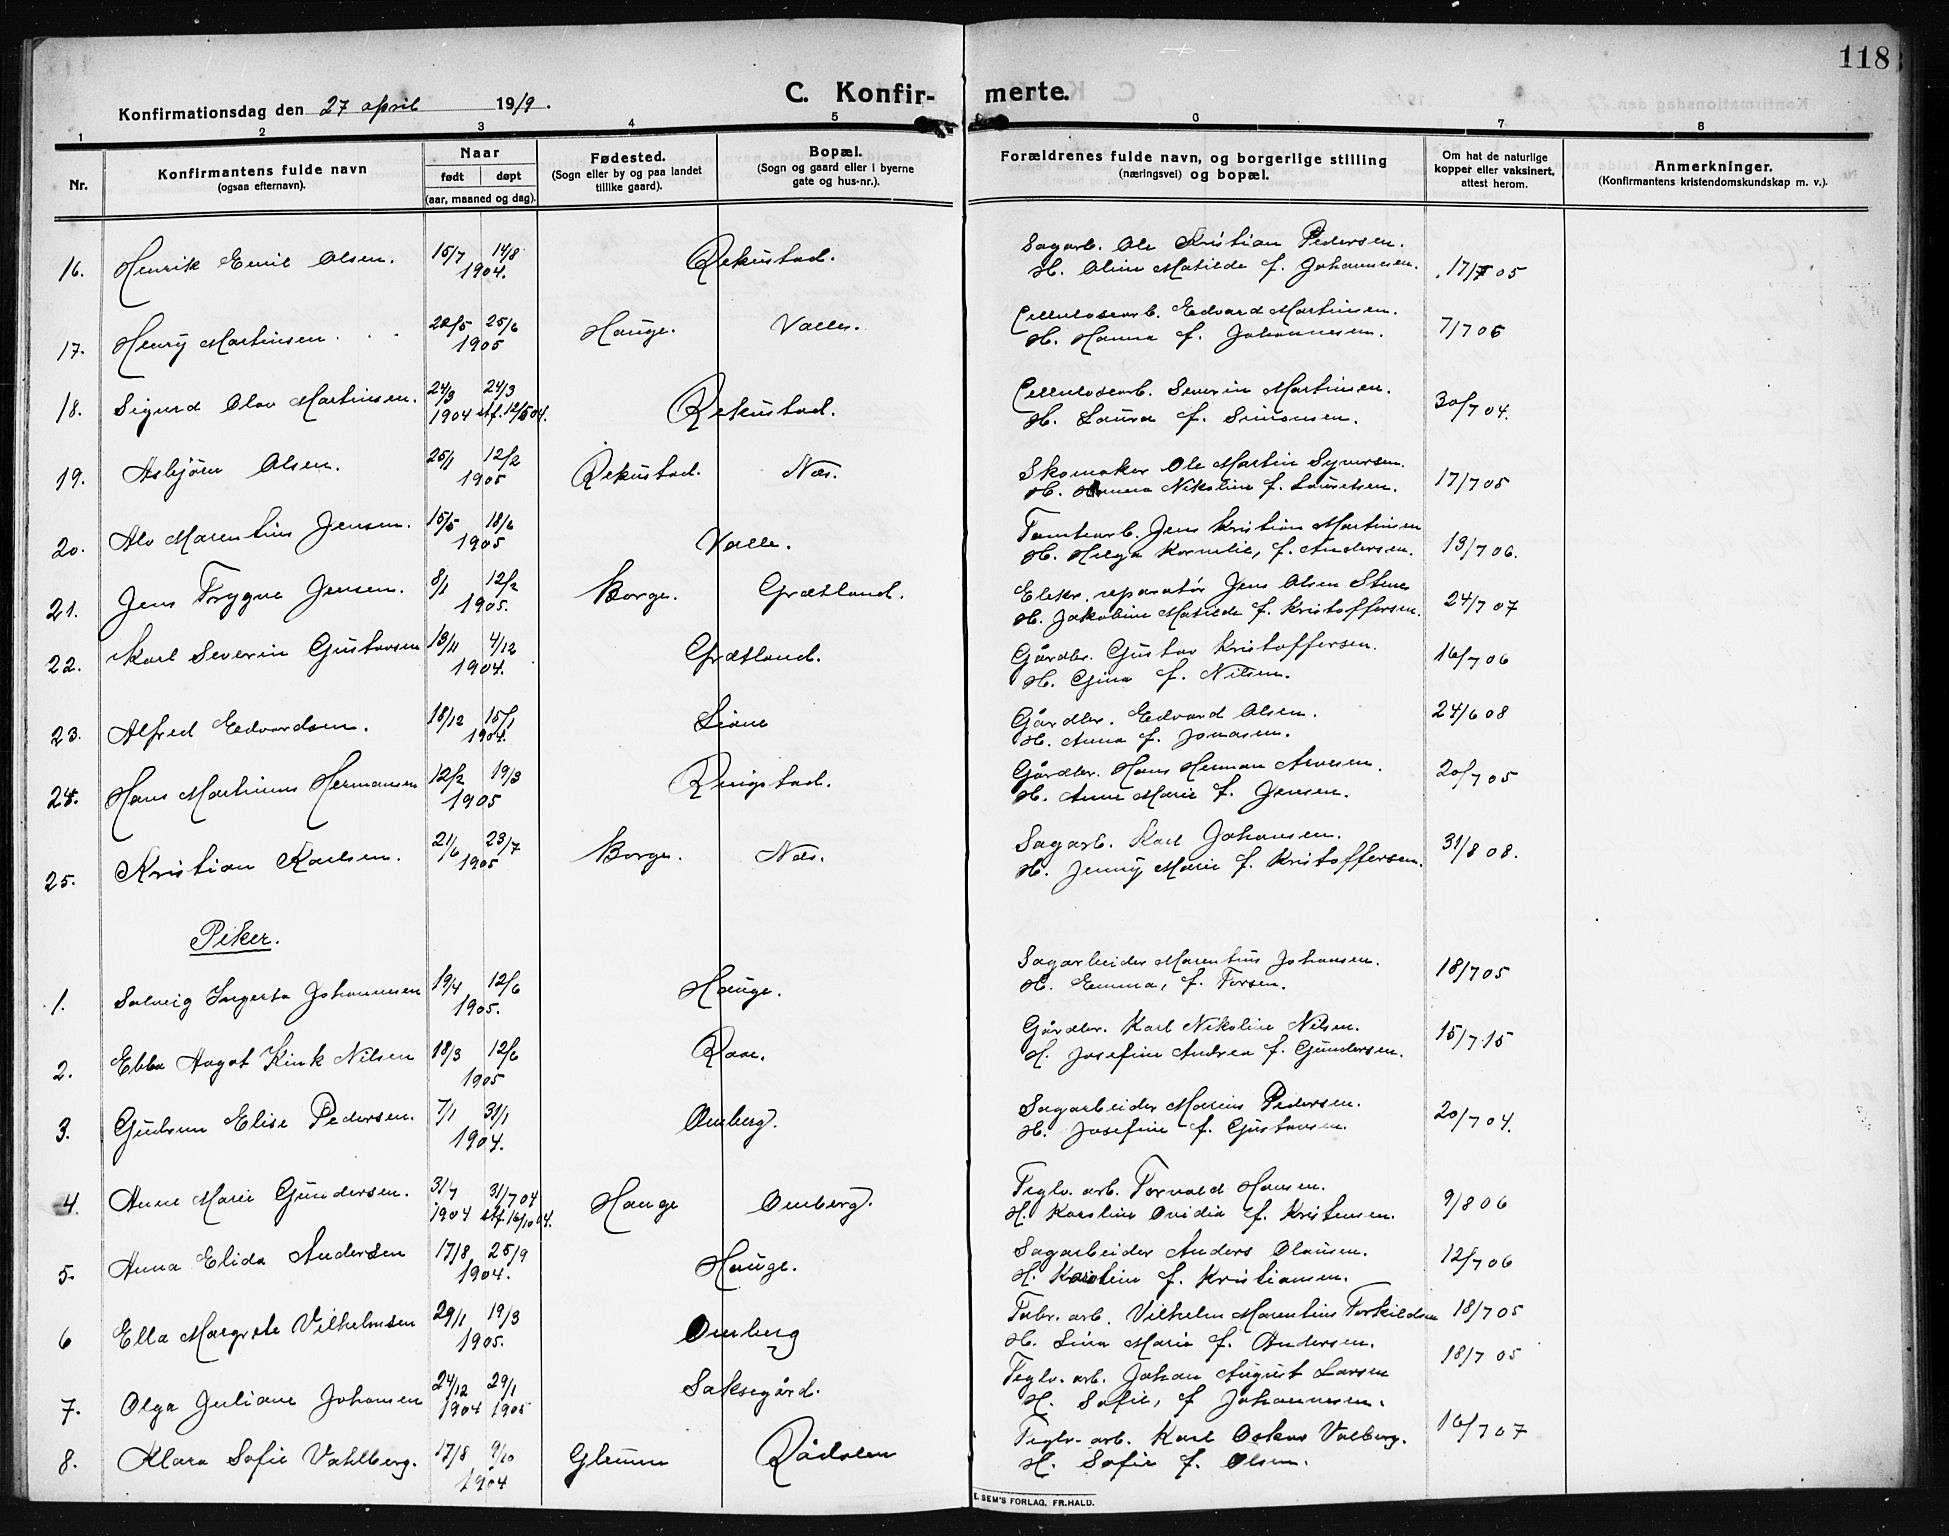 118
Konfirmationsdag den 27 april 1919.
C. Konfirmerte.
1 2 3 4 5 6 7 8
Nr.
Konfirmantens fulde navn
(ogsaa efternavn).
Naar
født døpt
(aar, maaned og dag).
Fødested.
(Sogn eller by og paa landet
tillike gaard).
Bopæl.
(Sogn og gaard eller i byerne
gate og hus-nr.).
Forældrenes fulde navn, og borgerlige stilling
(næringsvei) og bopæl.
Om hat de naturlige
kopper eller vaksinert,
attest herom.
Anmerkninger.
(Konfirmantens kristendomskundskap m. v.).
16. Henrik Emil Olsen. 15/7 14/8 1904. Rekustad. Sagarb. Ole Kristian Pedersen.
H. Oline Matilde f. Johannesen. 17/7 05
17. Henry Martinsen. 22/5 25/6 1905 Hauge. Valle. Cellulosearb. Edvard Martinsen.
H. Hanna f. Johannesen. 7/7 06
18. Sigurd Olav Martinsen. 24/3 24/3 1904 stf. 12/5 04. Rekustad. Cellulosearb. Severin Martinsen.
H. Laura f. Simonsen. 30/7 04.
19. Asbjörn Olsen. 25/1 12/2 1905 Rekustad. Næs. Skomaker Ole Martin Syversen.
H. Nikoline f. Lauritsen. 17/7 05
20. Alv Marentius Jensen. 15/5 18/6 1905 Valle. Tomtearb. Jens Kristian Martinsen
H. Helga Kornelie, f. Andersen. 13/7 06.
21. Jens Trygve Jensen. 8/1 12/2 1905. Borge. Grætland. Elektr. reparatör Jens Olsen Stene
H. Jakobine Matilde f. Kristoffersen. 24/7 07
22. Karl Severin Gustavsen 13/11 4/12 1904. Grætland. Gårdbr. Gustav Kristoffersen.
H. Gina f. Nilsen. 16/7 06
23. Alfred Edvardsen. 18/12 15/1 1904. Liane Gårdbr. Edvard Olsen.
H. Anna f. Jonasen. 24/6 08
24. Hans Martinius Hermansen 12/2 19/3 1905 Ringstad. Gårdbr. Hans Herman Arvesen.
H. Anne Marie f. Jensen. 20/7 05
25. Kristian Karlsen. 21/6 23/7 1905 Borge. Næs. Sagarb. Karl Johansen.
H. Jenny Marie f. Kristoffersen. 31/8 08.
Piker.
1. Solveig Ingerta Johannesen 19/4 12/6 1905. Hauge. Sagarbeider Marentius Johansen.
H. Emma, f. Torsen. 18/7 05
2. Ebba Hagat Kink Nilsen 18/3 12/6 1905 Raae. Gårdbr. Karl Nikoline Nilsen.
H. Josefine Andrea f. Gundersen. 15/7 15
3. Gudrun Elise Pedersen. 7/1 31/1 1904. Omberg. Sagarbeider Marius Pedersen.
H. Josefine f. Gustavsen. 20/7 04.
4. Anne Marie Gundersen. 31/7 1904 31/7 04 stf. 16/10 04. Hauge Omberg. Teglv. arb. Torvald Hansen.
H. Karoline Ovidia f. Kristensen. 9/8 06
5. Anna Elida Andersen 17/8 25/9 1904. Hauge. Sagarbeider Anders Olausen.
H. Karoline f. Kristiansen. 12/7 06
6 Ella Margrete Vilhelmsen 29/1 19/3 1905. Omberg Fabr. arb. Vilhelm Marentius Torkildsen
H. Lina Marie f. Andersen. 18/7 05
7. Olga Juliane Johansen 24/12 1904 29/1 1905 Saksegård. Teglv. arb. Johan August Larsen
H. Sofie, f Johannesen. 18/7 05
8. Klara Sofie Vahlberg. 17/8 9/10 1904 Glemmen Rådalen Teglv. arb. Karl Oskar Valberg.
H. Sofie f. Olsen. 16/7 07
E. SEM'S FORLAG, FR.HALD.